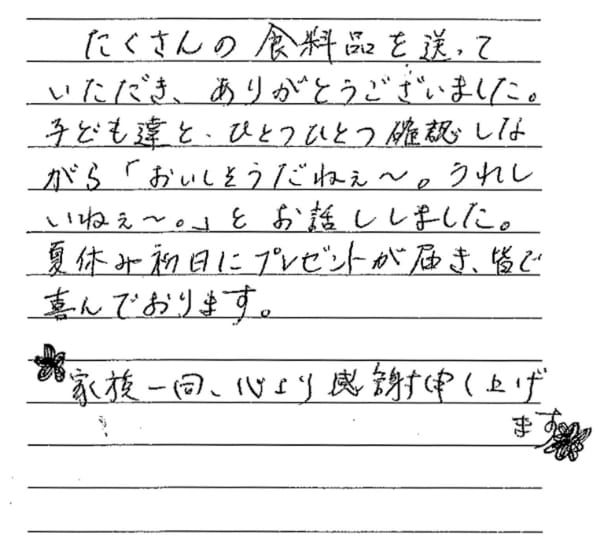 たくさんの食料品を送って
いただき、ありがとうございました。
子ども達と、ひとつひとつ確認しな
がら「おいしそうだねぇ〜。うれし
いねぇ〜。」とお話ししました。
夏休み初日にプレゼントが届き、皆で
喜んでおります。
家族一同、心より感謝申し上げ
ます